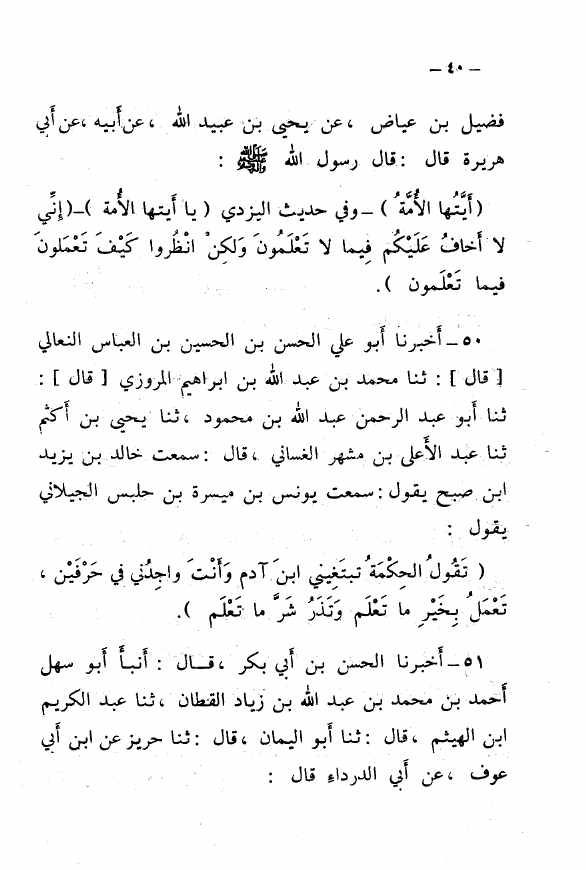 – ٤٠ –
فضيل بن عياض ، عن يحيى بن عبيد الله ، عن أبيه ، عن أبي
هريرة قال : قال رسول الله ﷺ :
( أَيَّتُها الأُمَّةُ ) – وفي حديث اليزدي ( يا أيتها الأمة ) – ( إِنِّي
لا أَخافُ عَلَيْكُم فِيما لا تَعْلَمُونَ وَلكِنْ انْظُروا كَيْفَ تَعْمَلونَ
فيما تَعْلَمون ) .
٥٠ – أخبرنا أبو علي الحسن بن الحسين بن العباس النعالي
[ قال ] : ثنا محمد بن عبد الله بن ابراهيم المروزي [ قال ] :
ثنا أبو عبد الرحمن عبد الله بن محمود ، ثنا يحيى بن أكثم
ثنا عبد الأعلى بن مشهر الغساني ، قال : سمعت خالد بن يزيد
ابن صبح يقول : سمعت يونس بن ميسرة بن حلبس الجيلاني
يقول :
( تَقُولُ الحِكْمَةُ تبتَغيني ابنَ آدم وَأَنْتَ واجِدُني في حَرْفَيْن ،
تَعْمَلُ بِخَيْرِ ما تَعْلَم وَتَذَرُ شَرَّ ما تَعْلَم ) .
٥١ – أخبرنا الحسن بن أبي بكر ، قال : أنبأ أبو سهل
أحمد بن محمد بن عبد الله بن زياد القطان ، ثنا عبد الكريم
ابن الهيثم ، قال : ثنا أبو اليمان ، قال : ثنا حريز عن ابن أبي
عوف ، عن أبي الدرداء قال :